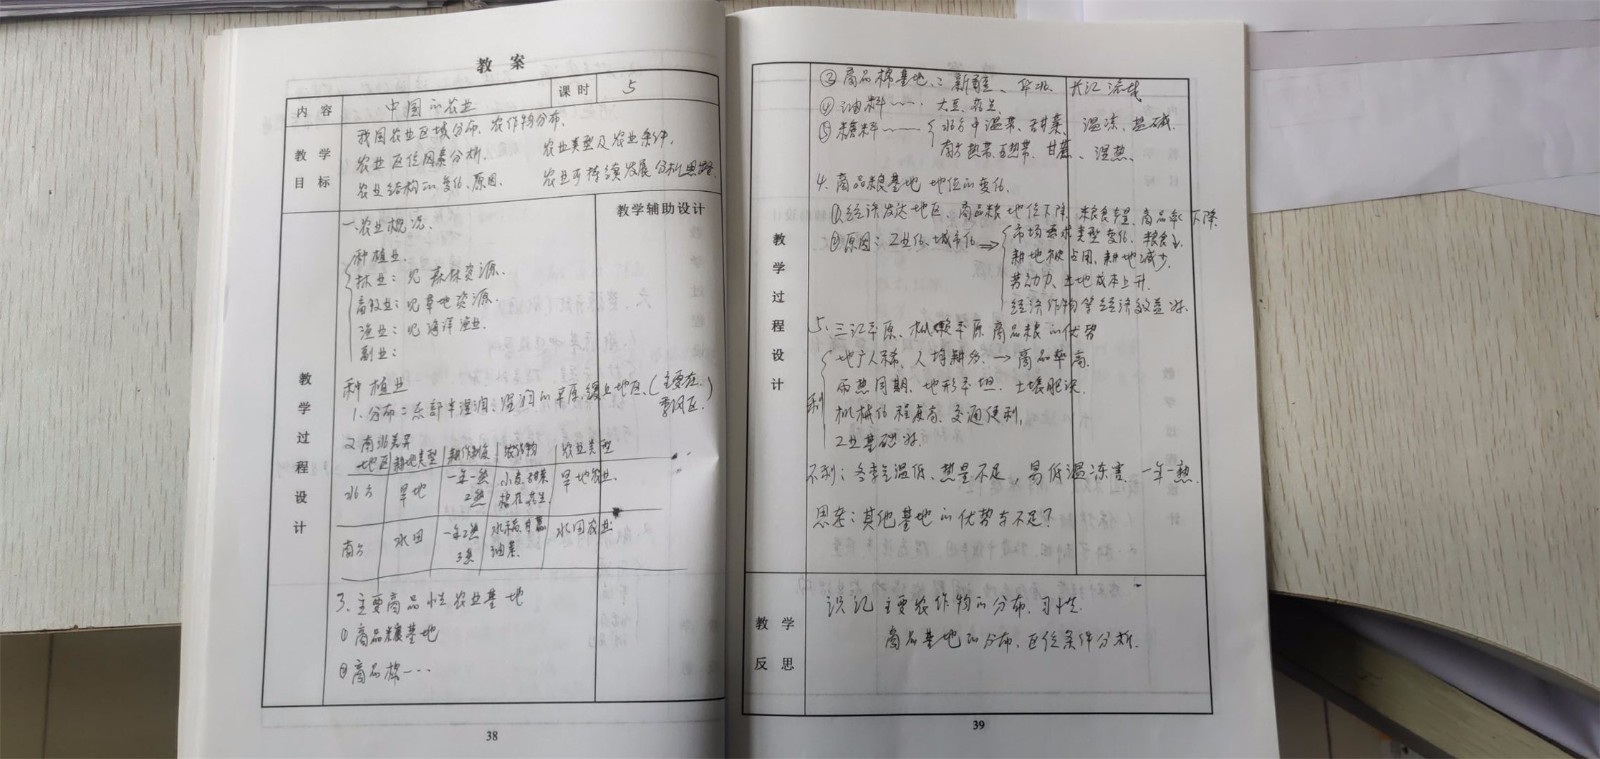 教 案
内 容 中国的农业 课 时 5
教 学 目 标
我国农业区域分布、农作物分布、
农业区位因素分析. 农业类型及农业条件,
农业结构的变化、原因. 农业可持续发展分析思路
教学过程设计
教学辅助设计
一、农业概况.
种植业
林业：见森林资源.
畜牧业：见草地资源.
渔业：见海洋渔业.
副业：
种植业
1.分布：东部半湿润、湿润的平原、缓土地区、(主要在季风区.)
2.南北差异
地区 耕地类型 耕作制度 农作物 农业类型
北方 旱地 一年一熟 2熟 小麦、甜菜 棉花、花生. 旱地农业.
南方 水田 一年2熟 3熟 水稻、甘蔗 油菜. 水田农业
3、主要商品性农业基地
① 商品粮基地
② 商品棉一···
38
教学过程设计
③ 商品棉基地：新疆、华北、长江流域
④ 油料—··· 大豆、花生
⑤ 糖料—— 北方中温带、甜菜、温凉、盐碱.
南方热带、亚热带、甘蔗、湿热、
4. 商品粮基地 地位的变化.
①经济发达地区、商品粮地位下降. 粮食产量、商品率下降
②原因：工业化、城市化 ⇒ 市场需求类型变化、粮食↓
耕地被占用、耕地减少.
劳动力、土地成本上升.
经济作物等经济效益好.
5、三江平原、松嫩平原商品粮的优势
利
地广人稀、人均耕多. → 商品率高.
雨热同期、地形平坦、土壤肥沃.
机械化程度高、交通便利.
工业基础好.
不利：冬季气温低、热量不足，易低温冻害、一年一熟.
思考：其他基地的优势与不足？
教 学 反 思
识记 主要农作物的分布、习性.
商品基地的分布、区位条件分析.
39